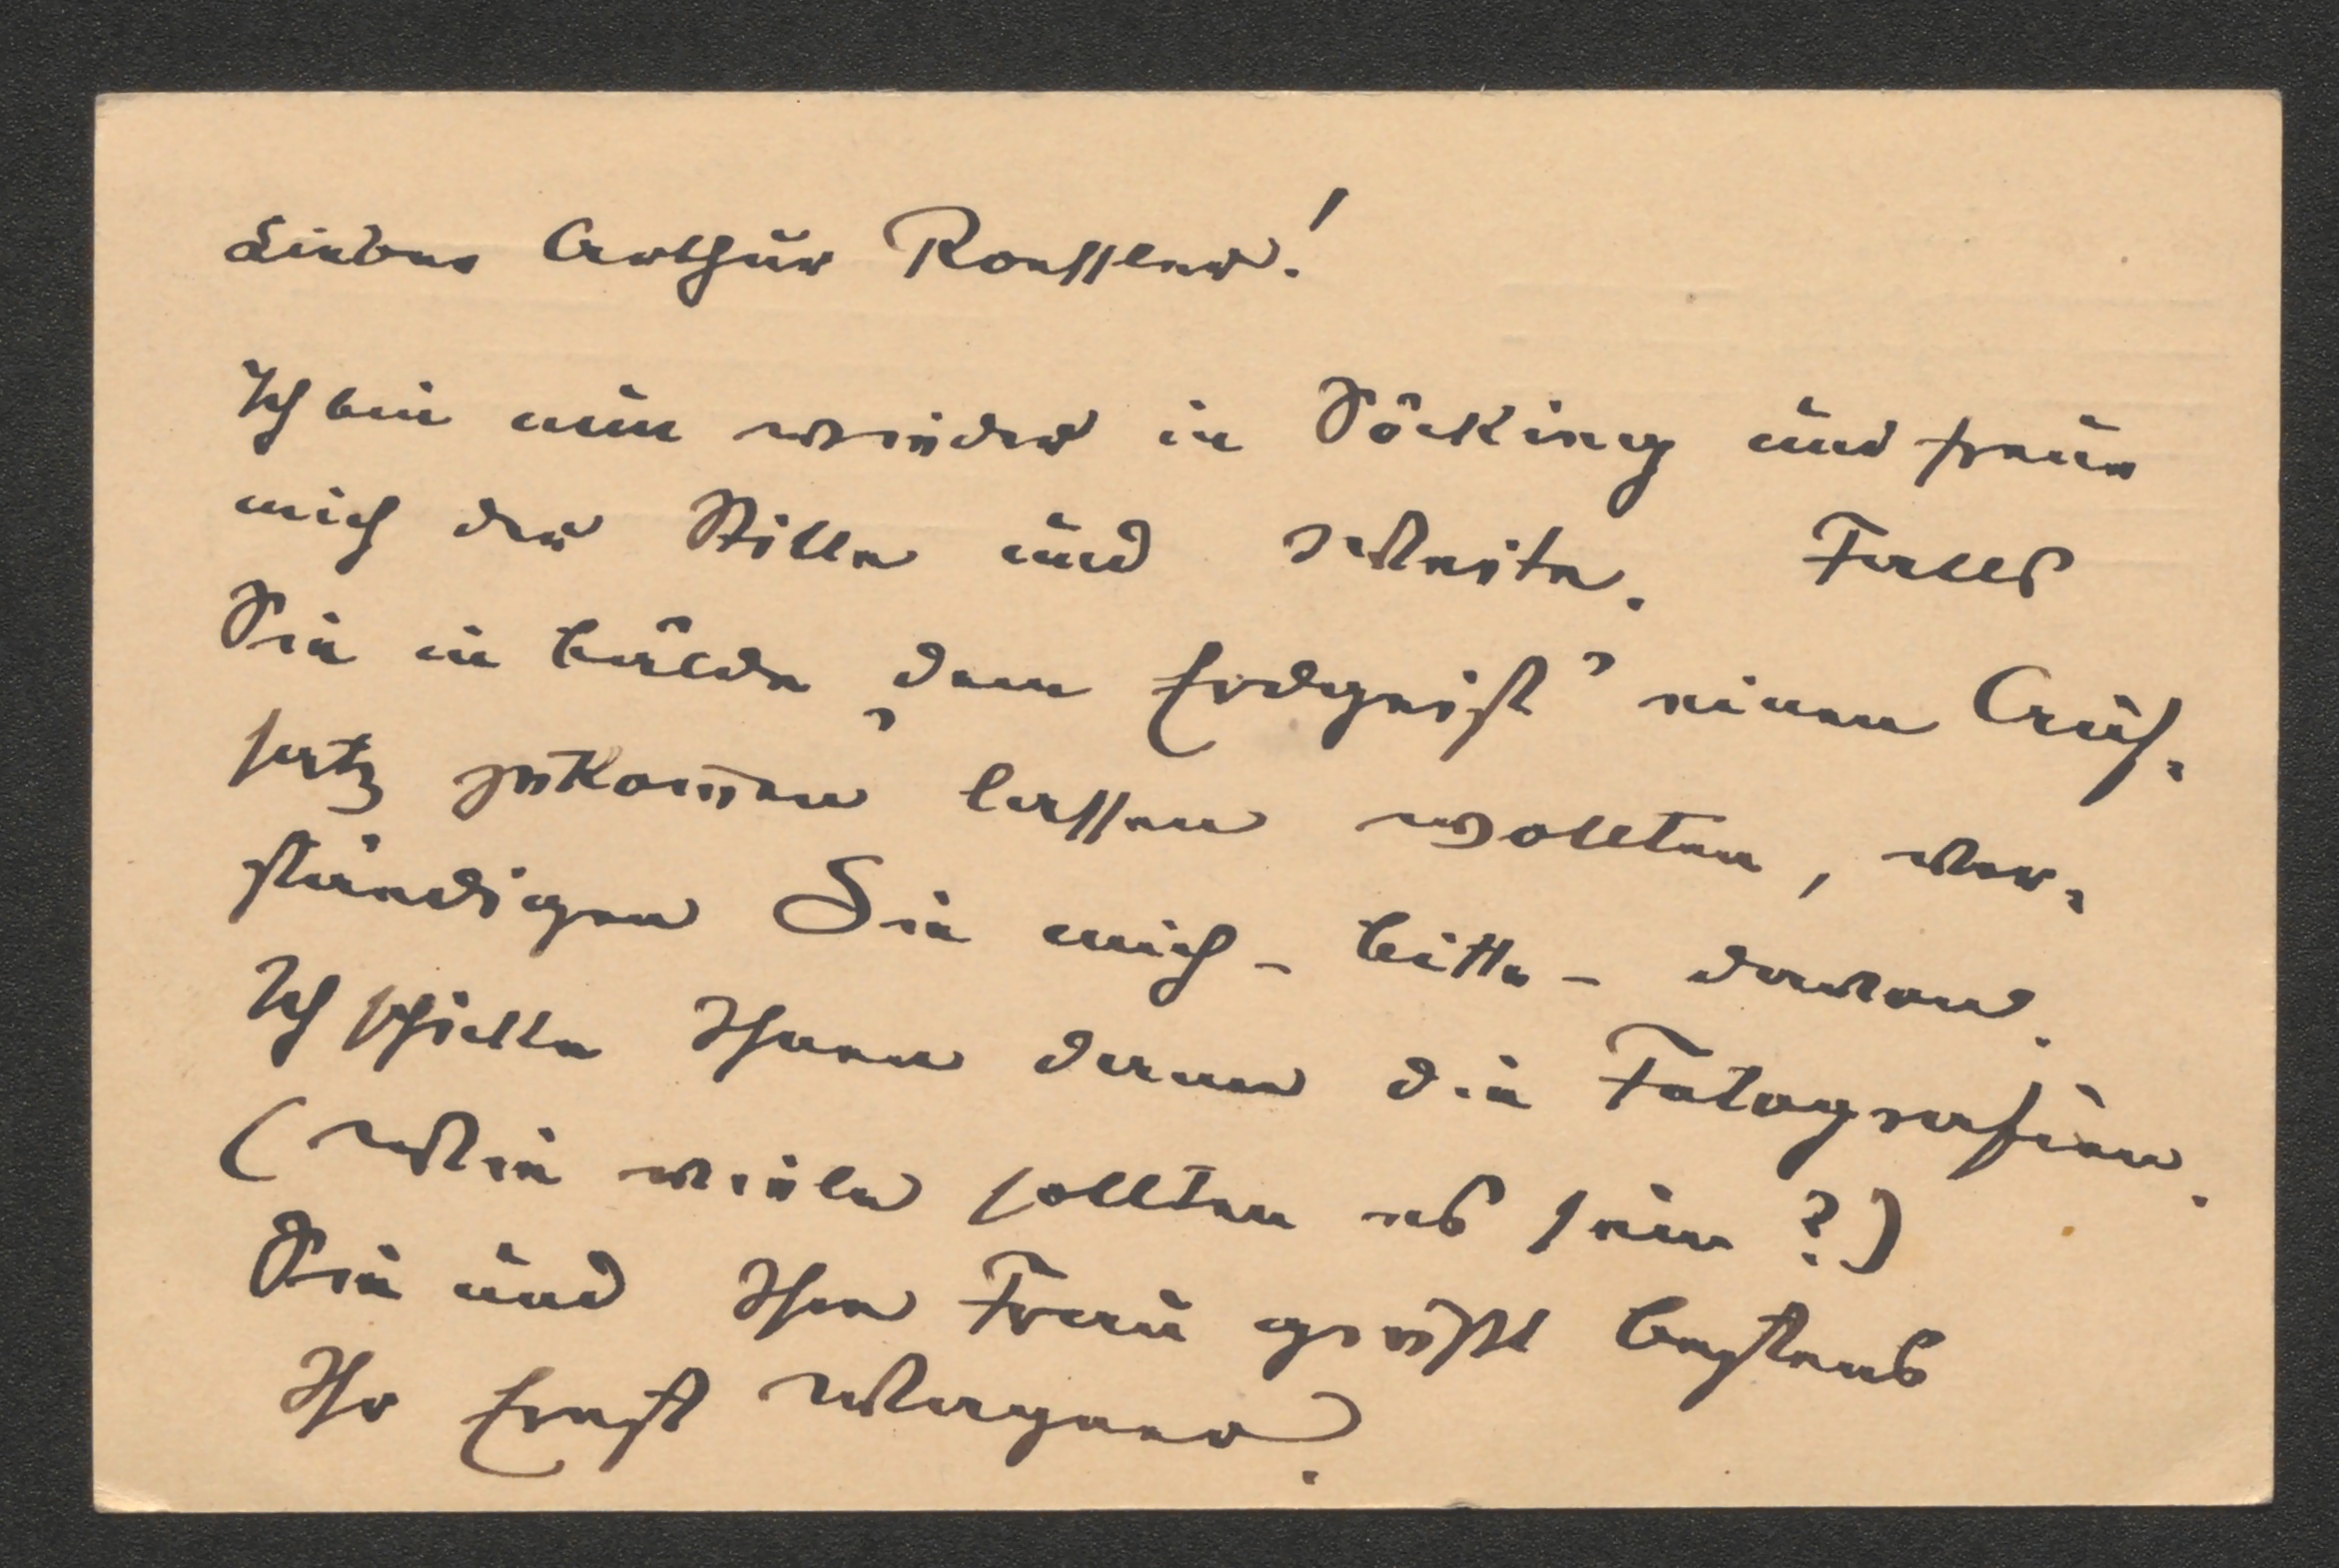 Lieber Arthur Roessler!
Ich bin nun wieder in Söcking und freue
mich der Stille und Weite. Falls
Sie in Bälde „dem Erdgeist” einen Auf-
satz zukom̄en lassen wollten, ver-
ständigen Sie mich - bitte - davon.
Ich schicke Ihnen dann die Fotografien.
(Wie viele sollten es sein?)
Sie und Ihre Frau grüßt bestens
Ihr Ernst Wagner.